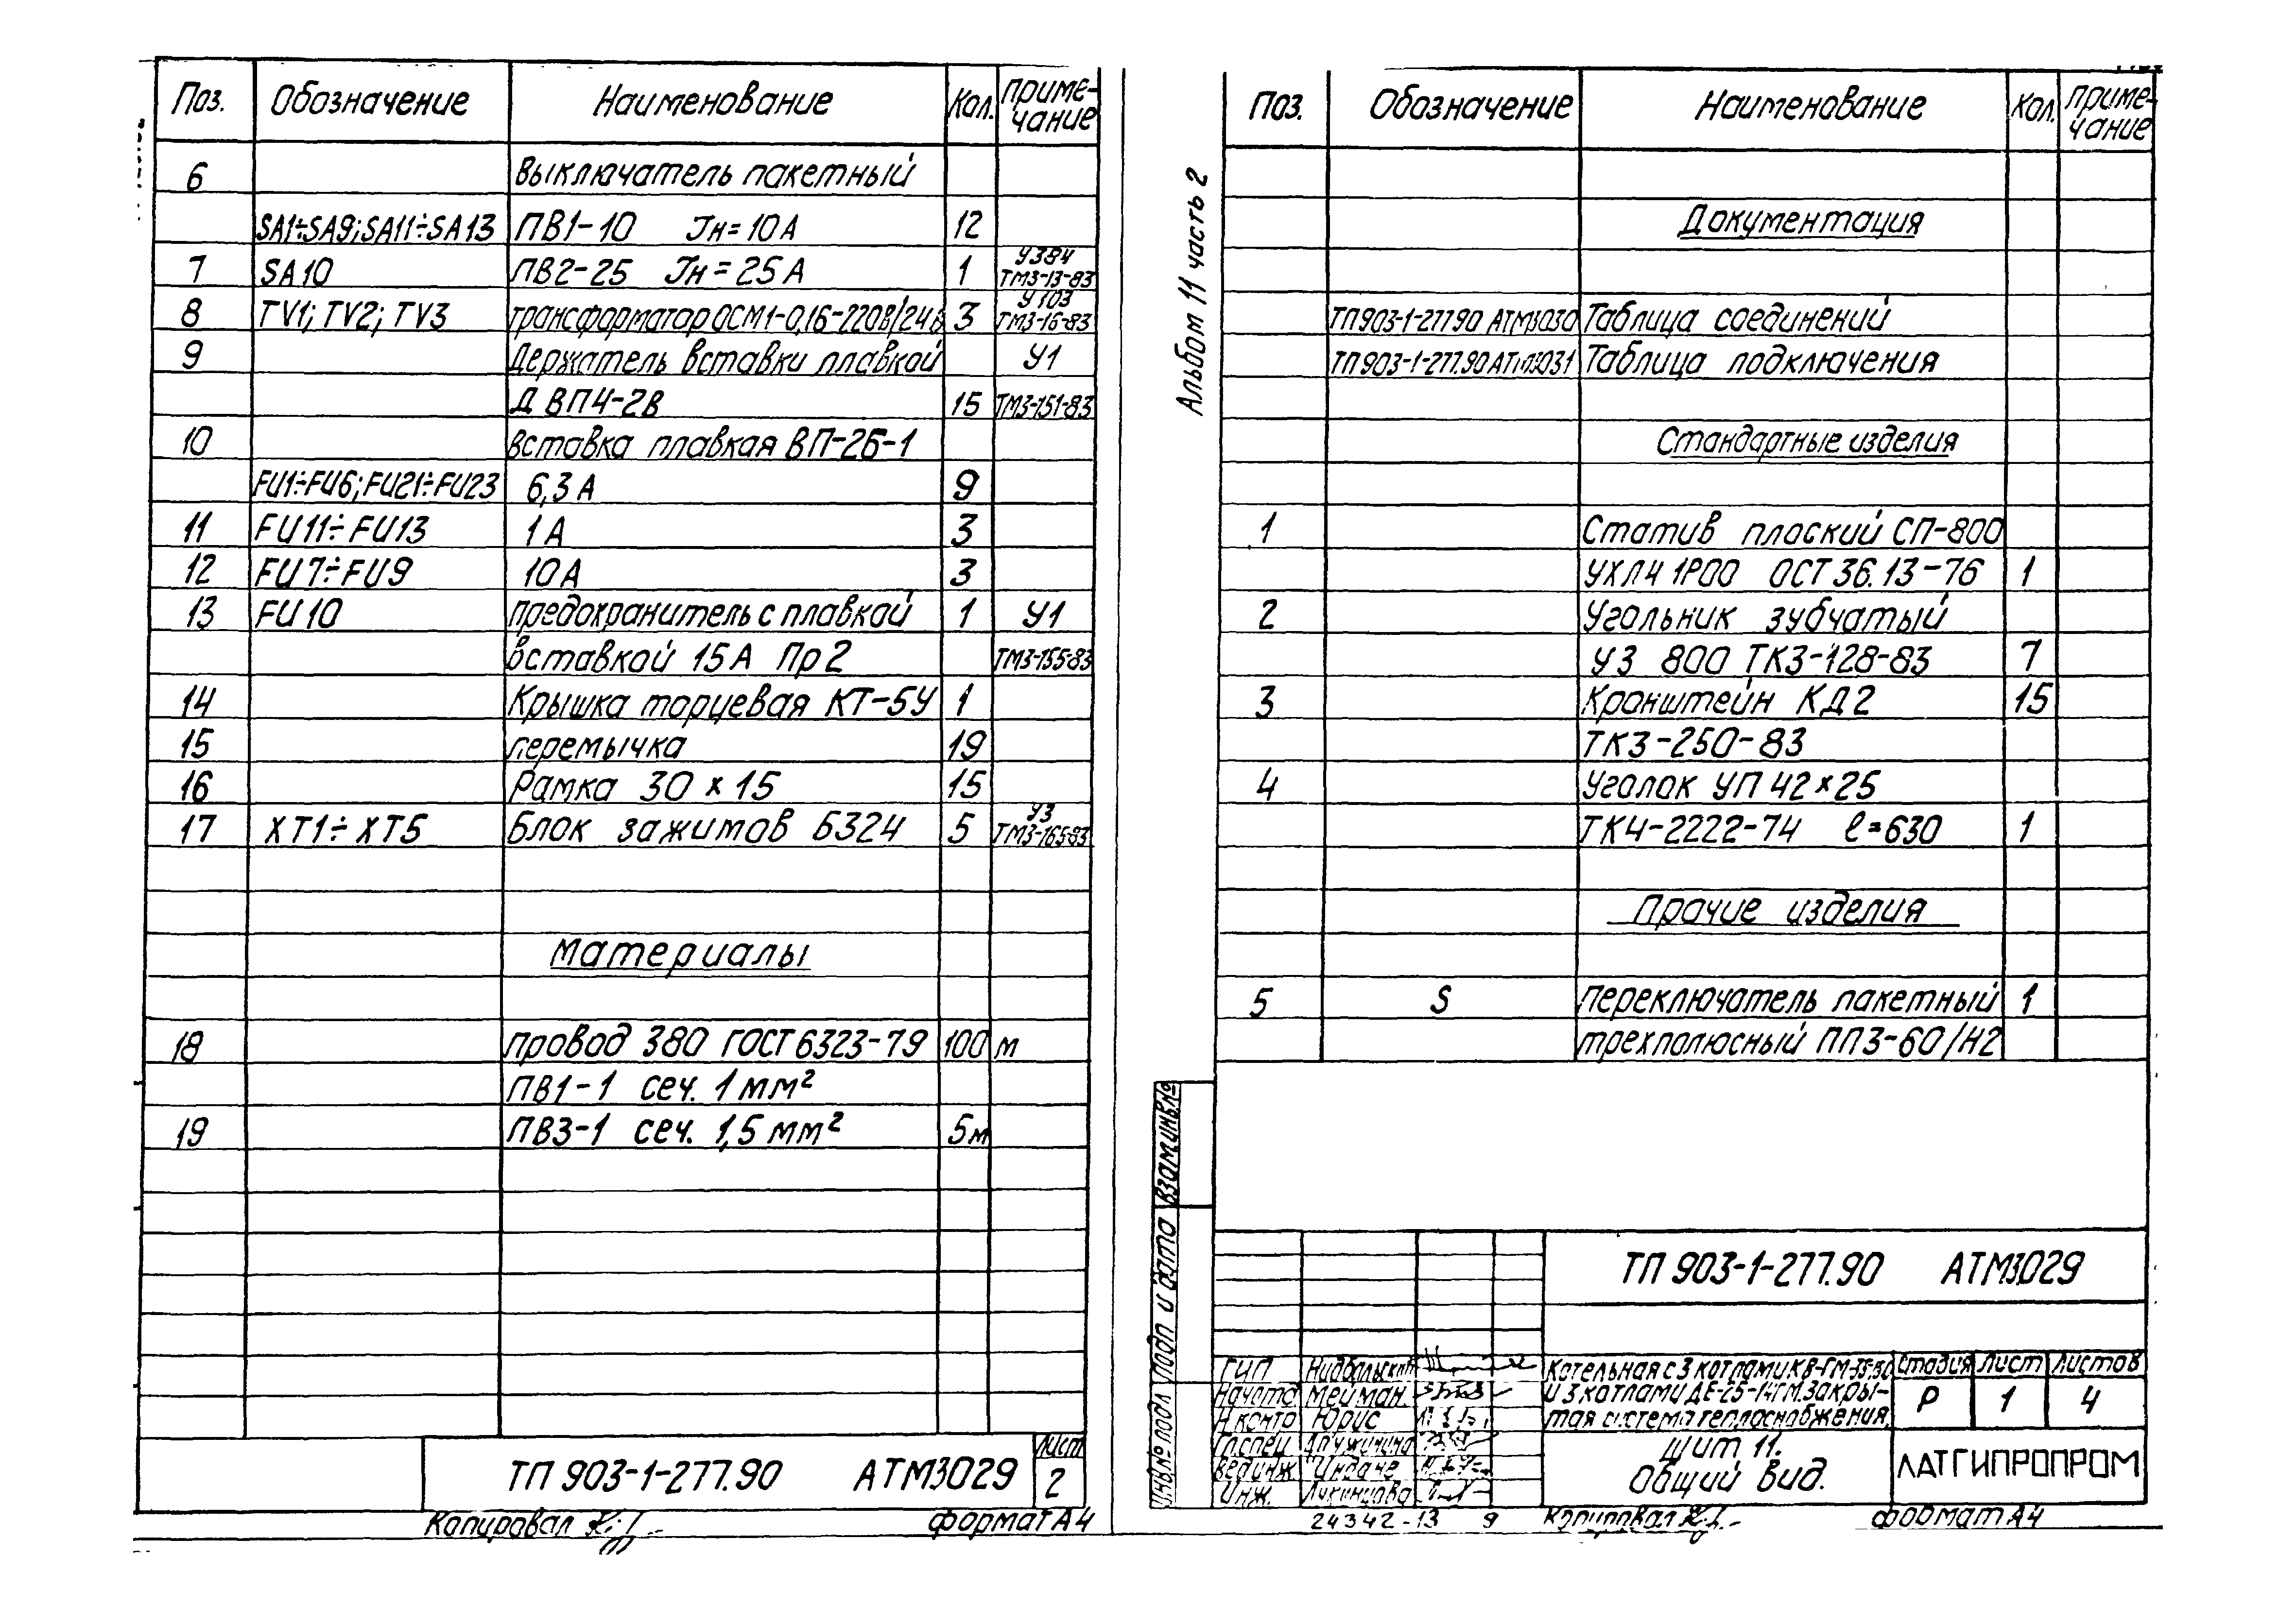 Поз. Обозначение Наименование Кол. Приме-чание
6 Выключатель пакетный
SA1÷SA9; SA11÷SA13 ПВ1-10 Jн=10А 12
7 SA10 ПВ2-25 Jн=25А 1 У384 ТМ3-13-83
8 TV1; TV2; TV3 трансформатор ОСМ1-0,16-220В/24В 3 У103 ТМ3-16-83
9 Держатель вставки плавкой У1
ДВП4-2В 15 ТМ3-151-83
10 вставка плавкая ВП-2Б-1
FU1÷FU6; FU21÷FU23 6,3А 9
11 FU11÷FU13 1А 3
12 FU7÷FU9 10А 3
13 FU10 предохранитель с плавкой 1 У1
вставкой 15А Пр2 ТМ3-155-83
14 Крышка торцевая КТ-5У 1
15 перемычка 19
16 Рамка 30×15 15
17 XT1÷XT5 Блок зажимов Б324 5 У3 ТМ3-165-83
Материалы
18 провод 380 ГОСТ 6323-79 100 м
ПВ1-1 сеч. 1 мм²
19 ПВ3-1 сеч. 1,5 мм² 5м
ТП 903-1-277.90 АТМ3029
Лист
2
Копировал
формат А4
Альбом 11 часть 2
Поз. Обозначение Наименование Кол. Приме-чание
Документация
ТП903-1-277.90 АТМ3030 Таблица соединений
ТП903-1-277.90 АТМ3031 Таблица подключения
Стандартные изделия
1 Статив плоский СП-800
УХЛ4 1Р00 ОСТ 36.13-76 1
2 Угольник зубчатый
УЗ 800 ТК3-128-83 7
3 Кронштейн КД2 15
ТК3-250-83
4 Уголок УП 42×25
ТК4-2222-74 ℓ=630 1
Прочие изделия
5 S Переключатель пакетный 1
трехполюсный ПП3-60/Н2
Взам.инв.№
Подп и дата
Инв.№ подл
ТП 903-1-277.90 АТМ3029
ГИП
Нач.отд Мейман.
Н.контр Юрис
Гл.спец
Вед.инж Индане
Инж.
Котельная с 3 котлами КВ-ГМ-35-150
и 3 котлами ДЕ-25-14ГМ. Закры-
тая система теплоснабжения.
Стадия Лист Листов
Р 1 4
Щит 11.
Общий вид.
ЛАТГИПРОПРОМ
24342-13 9
Копировал
формат А4